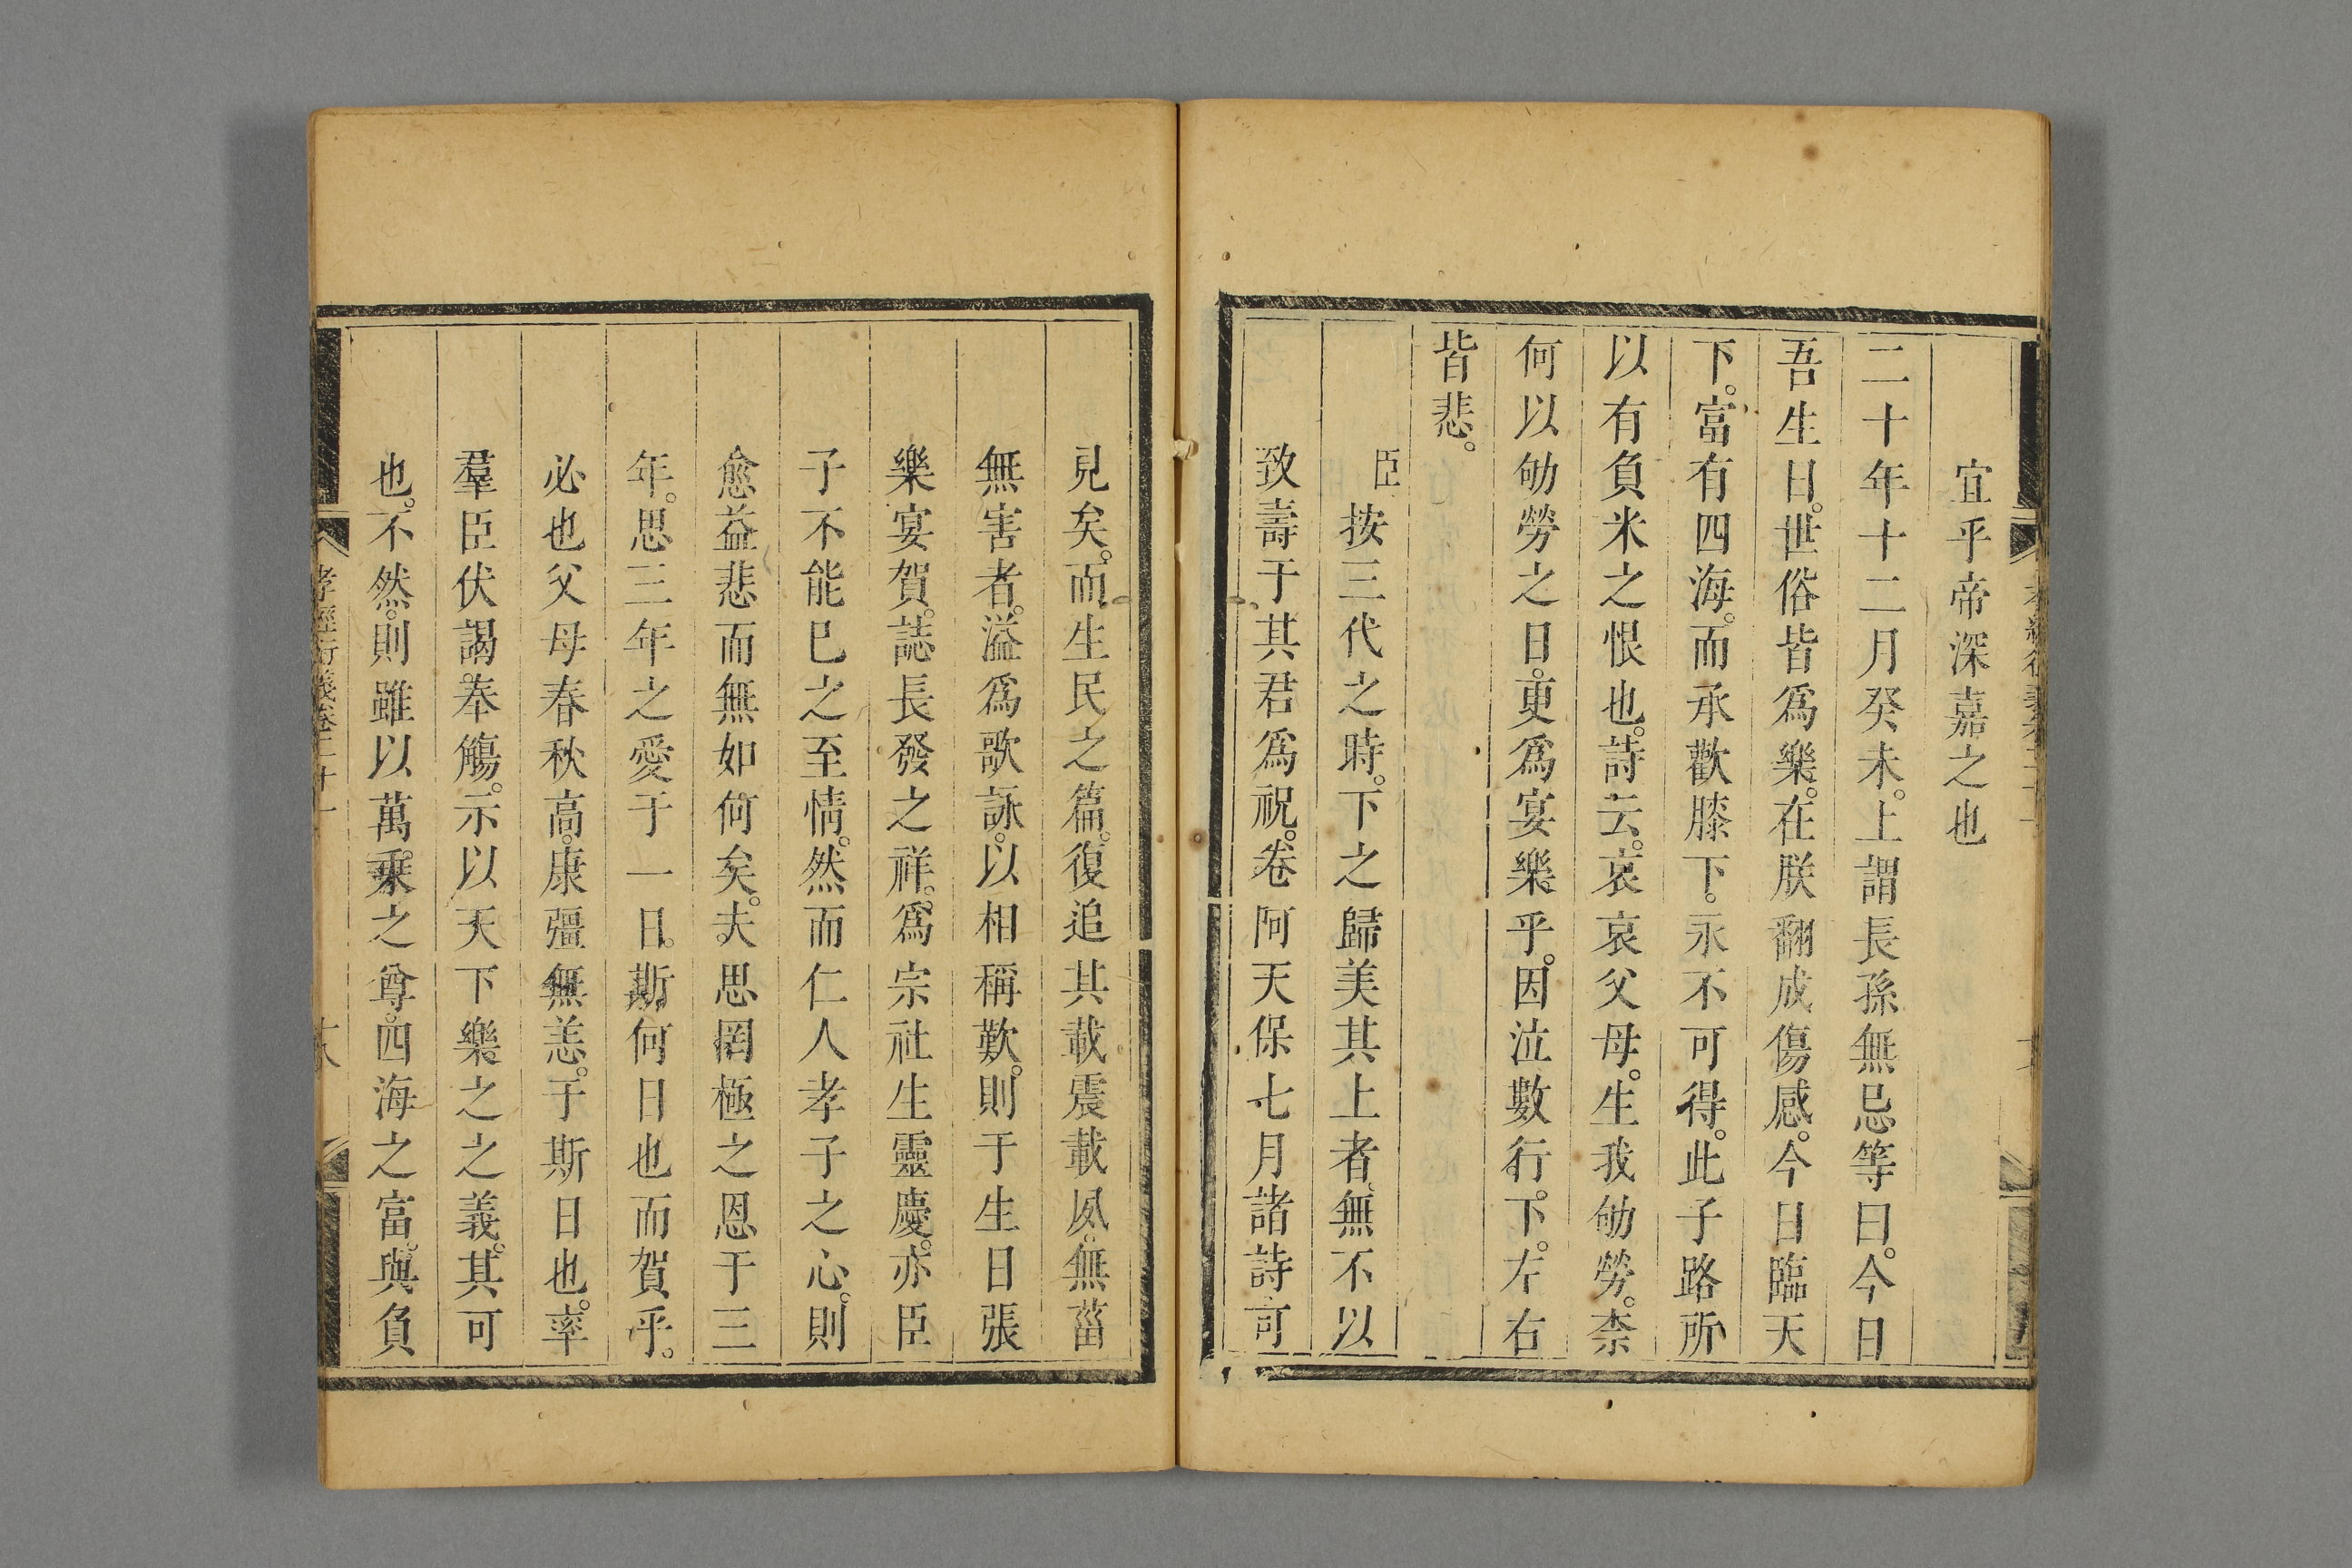 宜乎帝深嘉之也
二十年十二月癸未。上謂長孫無忌等曰。今日
吾生日。世俗皆爲樂。在朕翻成傷感。今日臨天
下。富有四海。而承歡膝下。永不可得。此子路所
以有負米之恨也。詩云。哀哀父母。生我劬勞。柰
何以劬勞之日。更爲宴樂乎。因泣數行下。左右
皆悲。
臣按三代之時。下之歸美其上者。無不以
致壽于其君爲祝。卷阿天保七月諸詩可
見矣。而生民之篇。復追其載震載夙。無菑
無害者。溢爲歌詠。以相稱歎。則于生日張
樂宴賀。誌長發之祥。爲宗社生靈慶。亦臣
子不能已之至情。然而仁人孝子之心。則
愈益悲而無如何矣。夫思罔極之恩于三
年。思三年之愛于一日。斯何日也而賀乎。
必也父母春秋高。康彊無恙。于斯日也。率
羣臣伏謁。奉觴。示以天下樂之之義。其可
也。不然。則雖以萬乘之尊。四海之富。與負
孝經衍義卷二十一
十八